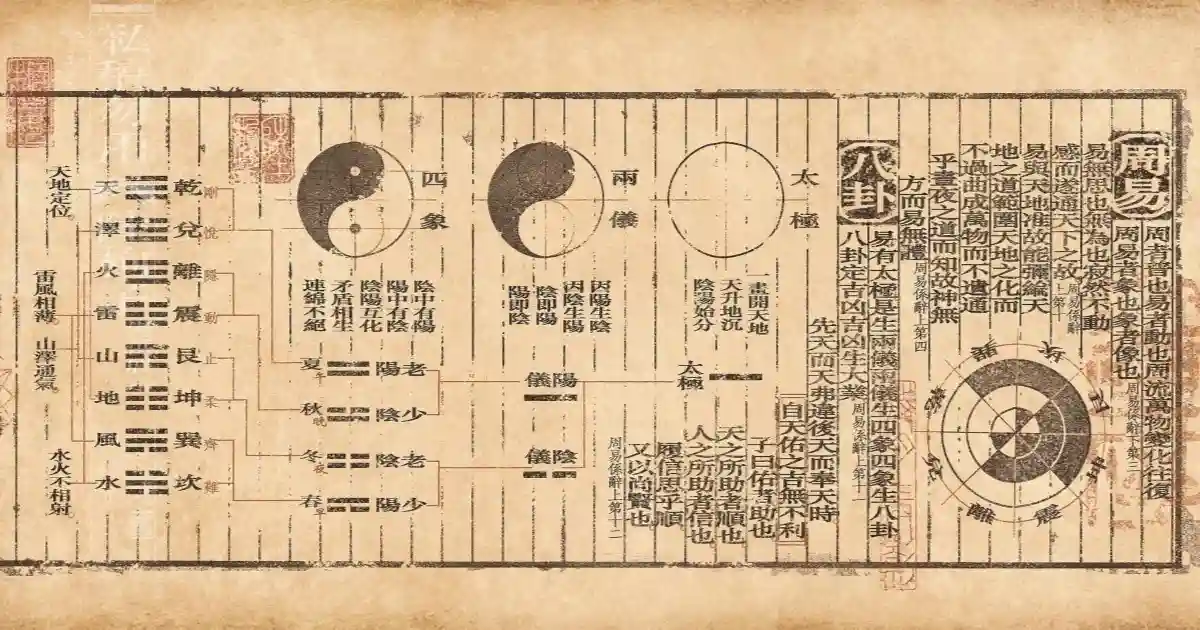 周易
周者普也易者動也周流萬物變化往復
周易者象也象者像也
周易係辭下第三
易無思也無為也寂然不動
感而遂通天下之故
周易係辭上第十
易與天地准故能彌綸天
地之道範圍天地之化而
不過曲成萬物而不遺通
乎晝夜之道而知故神無
方而易無體
周易係辭上第四
坎
震
離
八卦
易有太極是生兩儀兩儀生四象四象生八卦
八卦定吉凶吉凶生大業
周易係辭上第十一
先天而天弗違後天而奉天時
自天佑之吉無不利
子曰佑者助也
天之所助者順也
人之所助者信也
履信思乎順
又以尚賢也
周易係辭上第十二
太極
一畫開天地
天升地沉
陰陽始分
太極
兩儀
因陽生陰
因陰生陽
陰即陽
陽即陰
儀陽
儀陰
四象
陰中有陽
陽中有陰
陰陽互化
矛盾相生
連綿不絕
夏 陽老
秋 陰少
冬 陰老
春 陽少
天 乾
澤 兌
火 離
雷 震
山 艮
地 坤
風 巽
水 坎
動
止
柔
天地定位
雷風相薄
山澤通氣
水火不相射